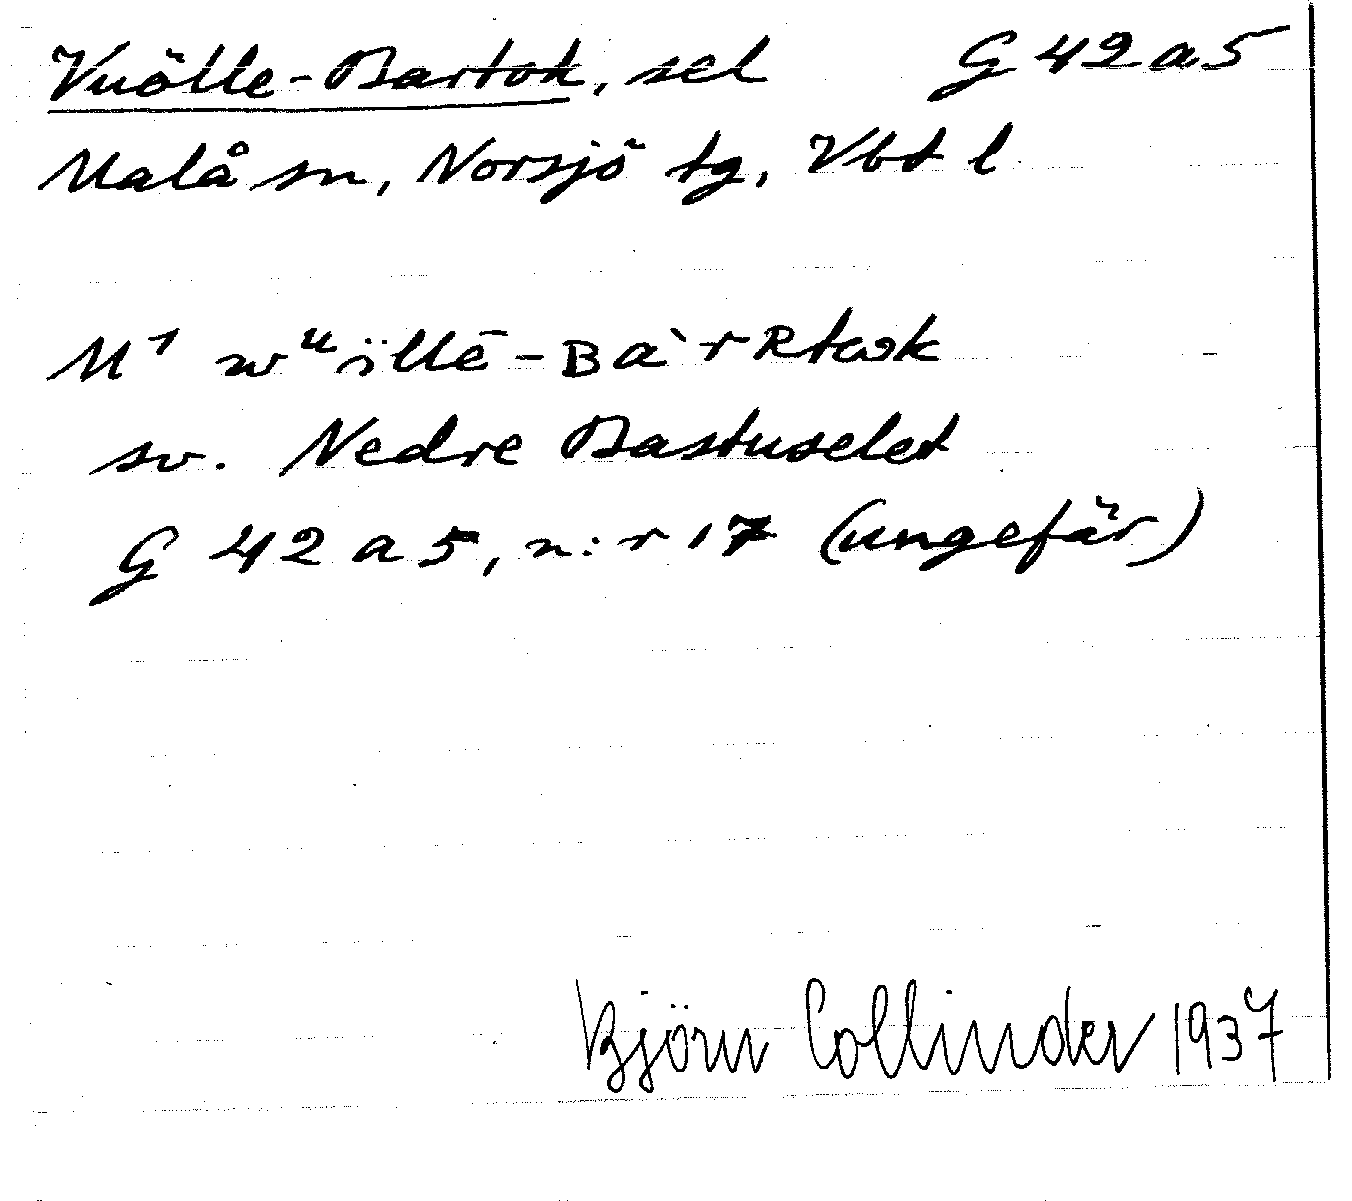 Vuölle-Bartok, sel G 42 a 5
Malå sn, Norsjö tg, Vbt l
M¹ wᵘïllē-BàrRtək
sv. Nedre Bastuselet
G 42 a 5, n:r 17 (ungefär)
Björn Collinder 1937